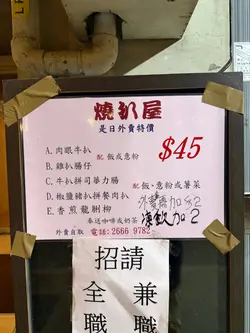 燒扒屋
是日外賣特價
A. 肉眼牛扒 配 飯或意粉
B. 雞扒腸仔
C. 牛扒拼司華力腸 配飯、意粉或薯菜
D. 椒鹽豬扒拼餐肉扒
E. 香煎龍脷柳
$45
外賣盒加$2
凍飲加2
奉送咖啡或奶茶
外賣自取 電話:2666 9782
招請
全 兼
職 職